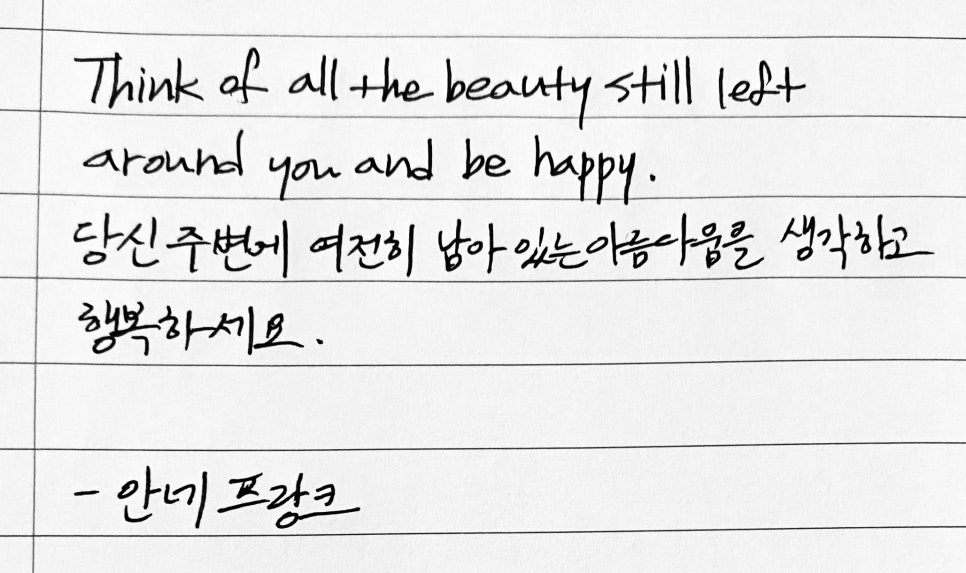 Think of all the beauty still left
around you and be happy.
당신 주변에 여전히 남아 있는 아름다움을 생각하고
행복하세요.
- 안네 프랑크